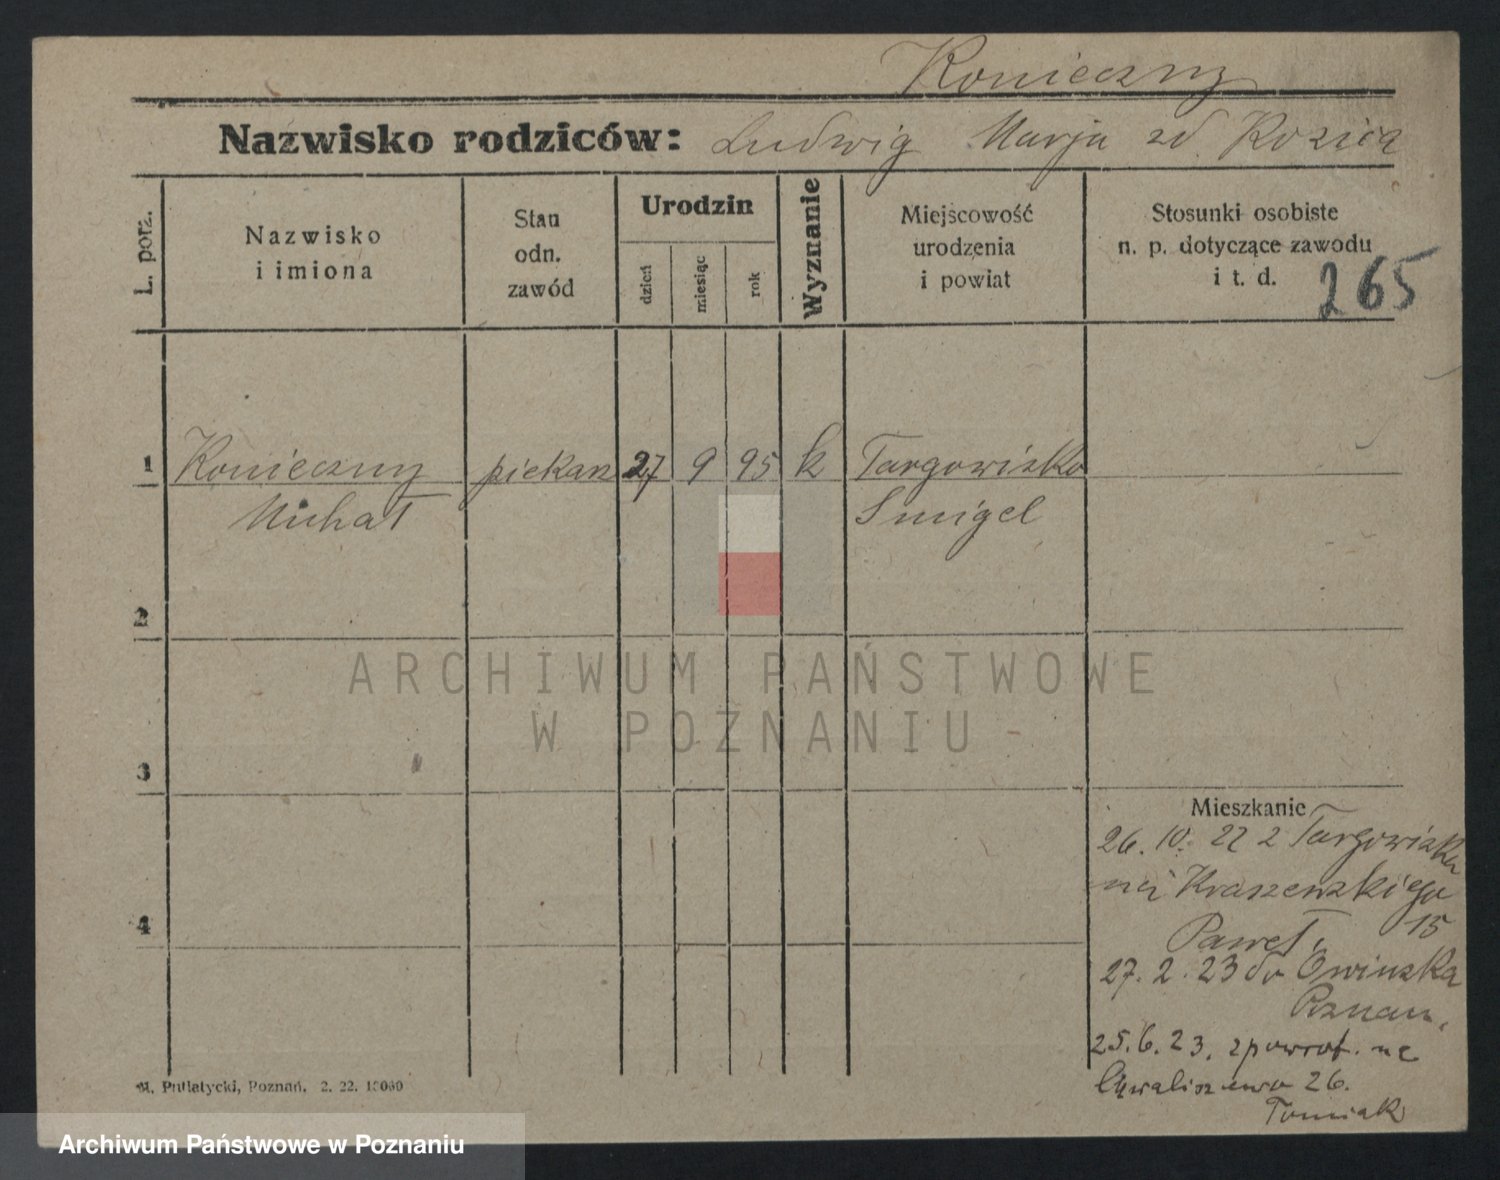 Konieczny
Nazwisko rodziców: Ludwig Marja zd Kozica
L. porz.
Nazwisko
i imiona
Stan
odn.
zawód
Urodzin
dzień
miesiąc
rok
Wyznanie
Miejscowość
urodzenia
i powiat
Stosunki osobiste
n. p. dotyczące zawodu
i t. d.
265
1 Konieczny piekarz 27 9 95 k Targowisko
Michał Smigel
2
3
4
Mieszkanie
26. 10. 22 z Targowiska
na Kraszewskiego
15
Paweł
27. 2. 23 do Owinska
Poznan.
25. 6. 23. zpowrot. na
Chwaliszewo 26.
Tomiak
M. Putiatycki, Poznań. 2. 22. 15000
ARCHIWUM PAŃSTWOWE
W POZNANIU
Archiwum Państwowe w Poznaniu